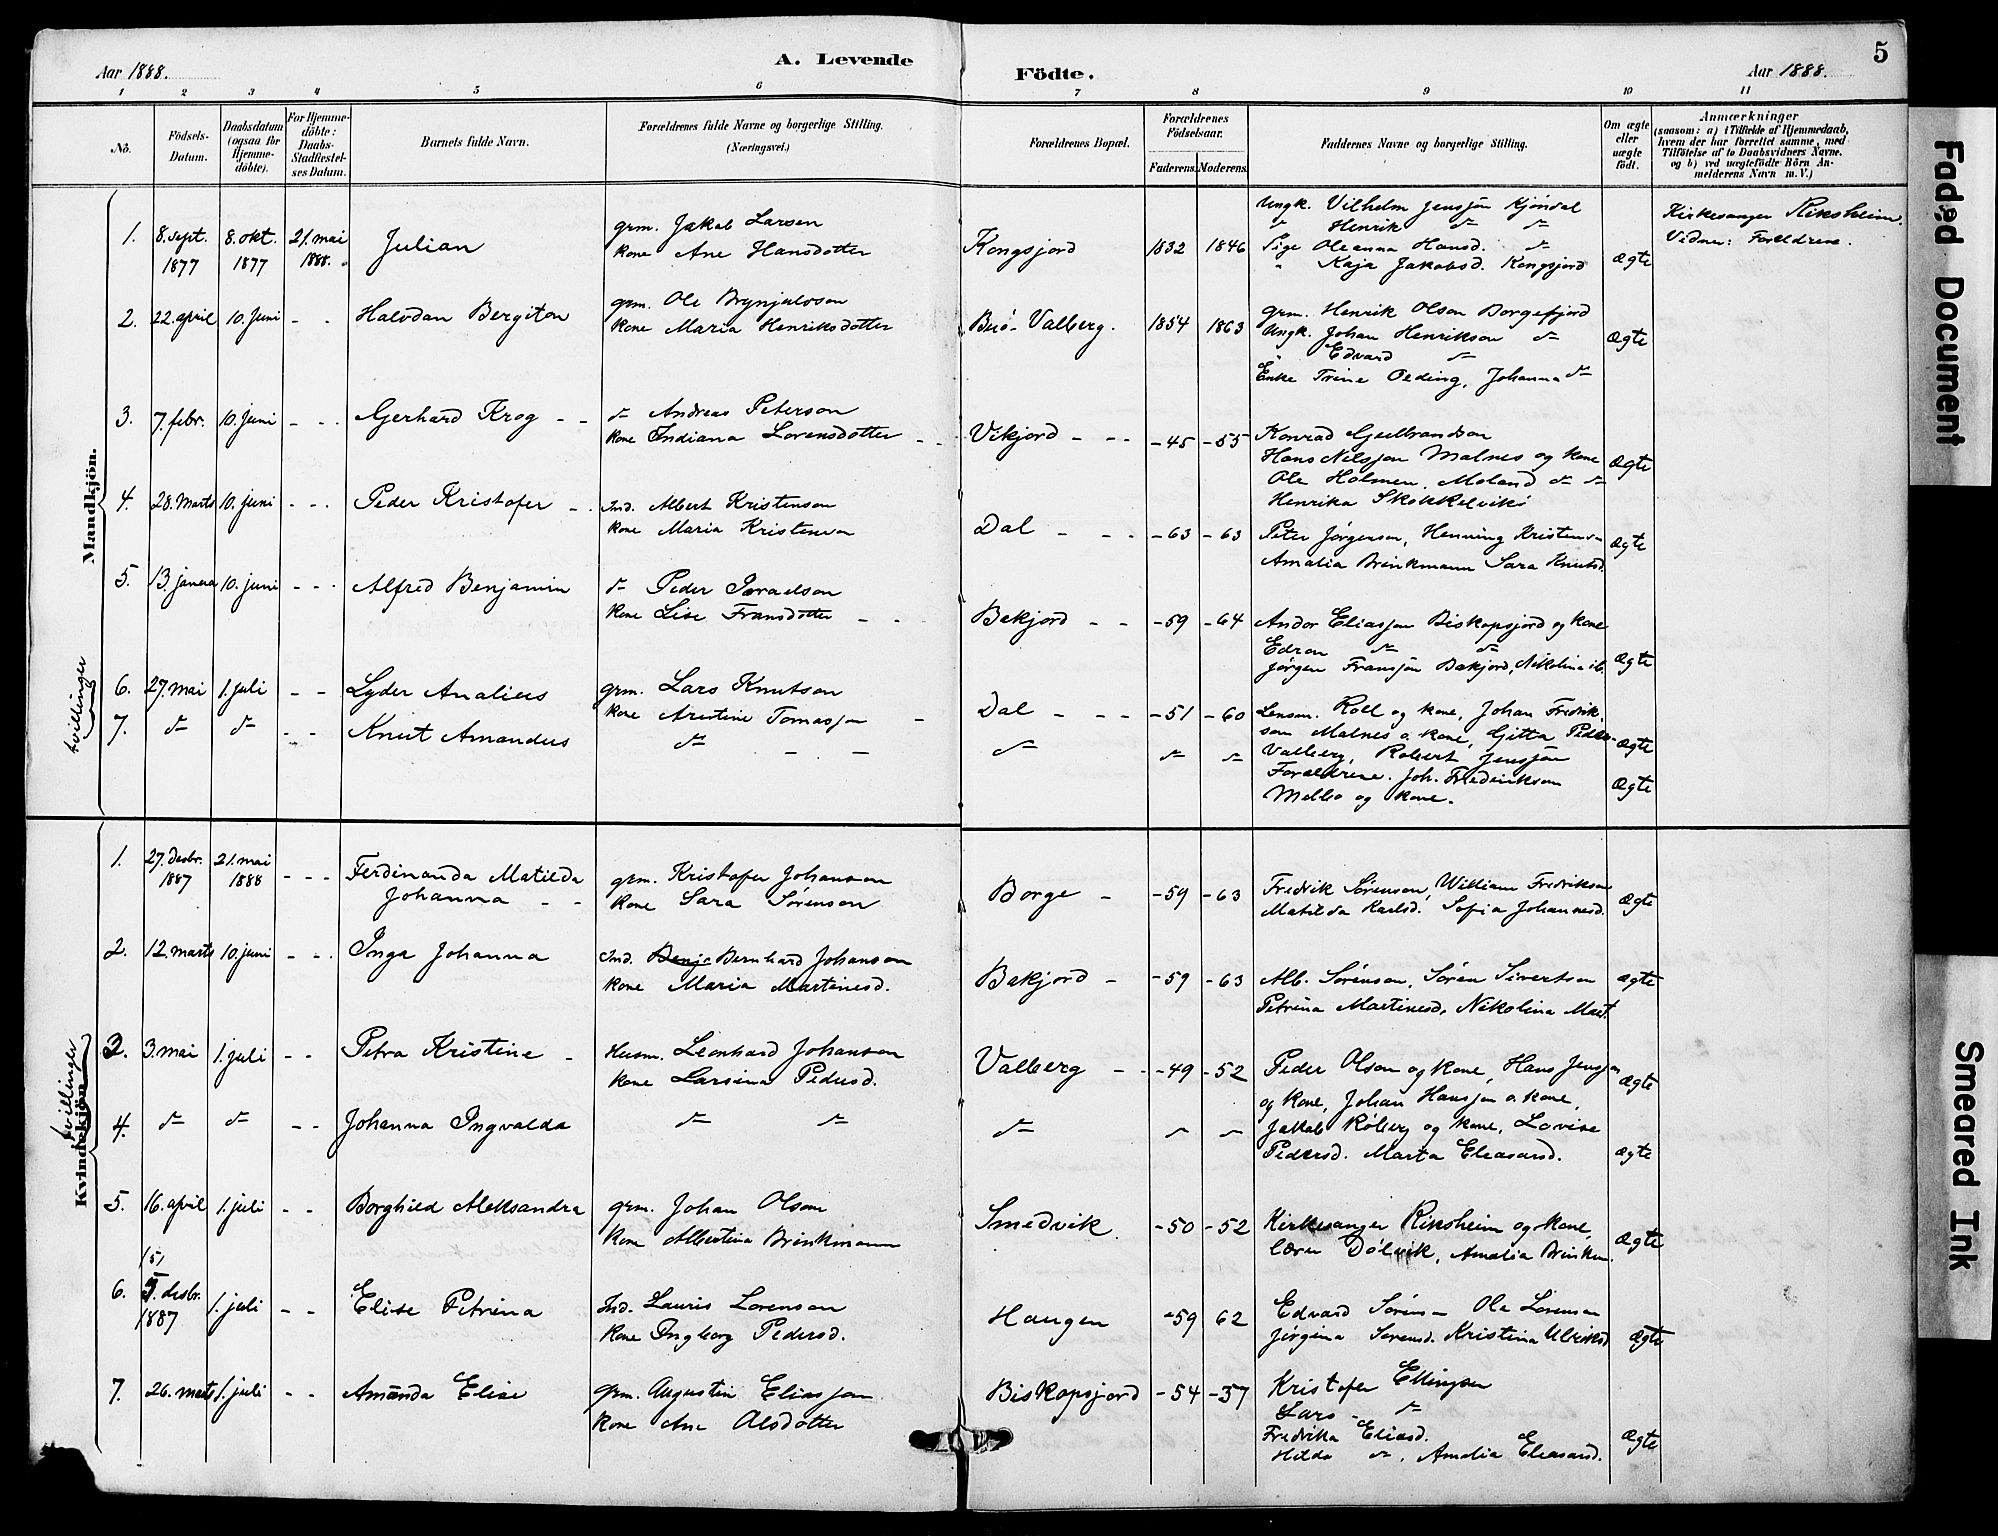 Aar 1888.
A. Levende
Födte.
Aar 1888.
5
1 2 3 4 5 6 7 8 9 10 11
No.
Födsels-
Datum.
Daabsdatum
(ogsaa for
Hjemme-
döbte).
For Hjemme-
döbte:
Daabs-
Stadfæstel-
ses Datum.
Barnets fulde Navn.
Forældrenes fulde Navne og borgerlige Stilling.
(Næringsvei.)
Forældrenes Bopæl.
Forældrenes
Födselsaar.
Faderens. Moderens.
Faddernes Navne og borgerlige Stilling.
Om ægte
eller
uægte
født.
Anmærkninger
(saasom: a) i Tilfælde af Hjemmedaab,
hvem der har forrettet samme, med
Tilföielse af to Daabsvidners Navne.
og b) ved uægtefödte Börn An-
melderens Navn m.V.)
Mandkjön.
1. 8. sept. 1877 8. okt. 1877 21. mai 1888. Julian
grm. Jakob Larsen
kone Ane Hansdotter
Kongsjord 1832 1846
Ungk. Vilhelm Jensson Kjöndal
" Henrik do do
Pige Oleanna Hansd. do
" Kaja Jakobsd. Kongsjord
ægte
Kirkesanger Riksheim.
Vidner: Forældrene.
2. 22. april 10. Juni - - Halvdan Bergiton
grm. Ole Brynjulvson
kone Maria Henriksdotter
Buö-Valberg. 1854 1863
grm. Henrik Olson Borgefjord
Ungk. Johan Henrikson do
" Edvard do
Enke Trine Olding, Johanna do
ægte
3. 7. febr. 10. juni - - Gjerhard Krog - -
do Andreas Peterson
kone Indiana Lorensdotter - -
Vikjord - - - -45 -55
Konrad Gulbrandson
Hans Nilsson Malnes og kone
Ole Holmen, Moland do do
Henrika Skokkelvikö
ægte
4. 28. marts 10. juni - - Peder Kristofer - -
Ind. Albert Kristenson
kone Maria Kristensen
Dal - - - -63 -63
Peter Jørgenson, Henning Kristens-
Amalia Brinkmann Sara Knutsd.
ægte
5. 13. janua 10. juni - - Alfred Benjamin
do Peder Israelson
kone Lise Fransdotter - -
Bekjord - - -59 -64
Andor Eliasson Biskopsjord og kone
Edron do do
Jørgen Fransson Bakjord, Nikolina ib.
ægte
tvillinger
6. 27. mai 1. juli - - Lyder Analius
grm. Lars Knutson
kone Arntine Tomasson -
Dal - - - -51 -60
Lensm. Roll og kone, Johan Fredrik-
son Malnes o. kone, Gitta Peder-
ægte
7. do do - - Knut Amandus
do - -
do do do
Valberg, Robert Jensson
Forældrene. Joh. Fredrikson
Melbo og kone.
ægte
Kvindekjön.
1. 27. desbr. 1887 21. mai 1888 - - - Ferdinanda Matilda
Johanna - -
grm. Kristofer Johanson
kone Sara Sörenson
Borge - -59 -63
Fredrik Sörenson, William Fredrikson
Matilda Karlsd. Sofia Johannesd.
ægte
2. 12. marts 10. juni - - Inga Johanna
Ind. Benj. Bernhard Johanson
kone Maria Martinesd.
Bakjord - -59 -63
Alb. Sörenson, Sören Sivertson
Petrina Martinesd, Nikolina Mart.
ægte
tvillinger
3. 3. mai 1. juli - - Petra Kristine -
Husm. Leonhard Johanson
kone Larsina Pedersd.
Valberg - - -49 -52
Peder Olson og kone, Hans Jensson
og kone, Johan Hansson o. kone,
ægte
4. do do - - Johanna Ingvalda
do do
do do do
Jakob Röberg og kone, Lovise
Pedersd. Marta Eleasarsd.
ægte
5. 16. april 1. juli - - Borghild Aleksandra
grm. Johan Olson
kone Albertina Brinkmann
Smedvik. -50 -52
Kirkesanger Riksheim og kone,
lærer Dölvik, Amalia Brinkm.
ægte
6. (5) 5. desbr. 1887 1. juli - - Elise Petrina
Ind. Lauris Lorenson
kone Ingborg Pedersd.
Haugen -59 62
Edvard Sörens- Ole Lorenson
Jörgina Sorensd. Kristina Ulriksd
ægte
7. 26. marts 1. juli - - Amanda Elise
grm. Augustin Eliasson
kone Ane Olsdotter
Biskopsjord -54 -57
Kristofer Ellingsen
Lars - do
Fredrika Eliasd.
Hilda do, Amalia Eleasarsd.
ægte
Faded Document
Smeared Ink